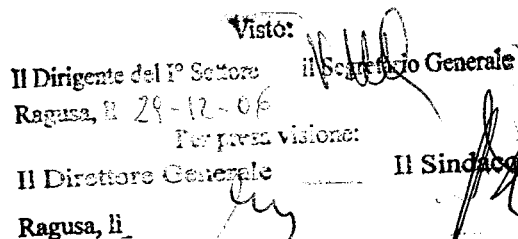 Visto:
Il Dirigente del I° Settore il Segretario Generale
Ragusa, lì 29-12-06
Per presa visione:
Il Direttore Generale Il Sindaco
Ragusa, lì_